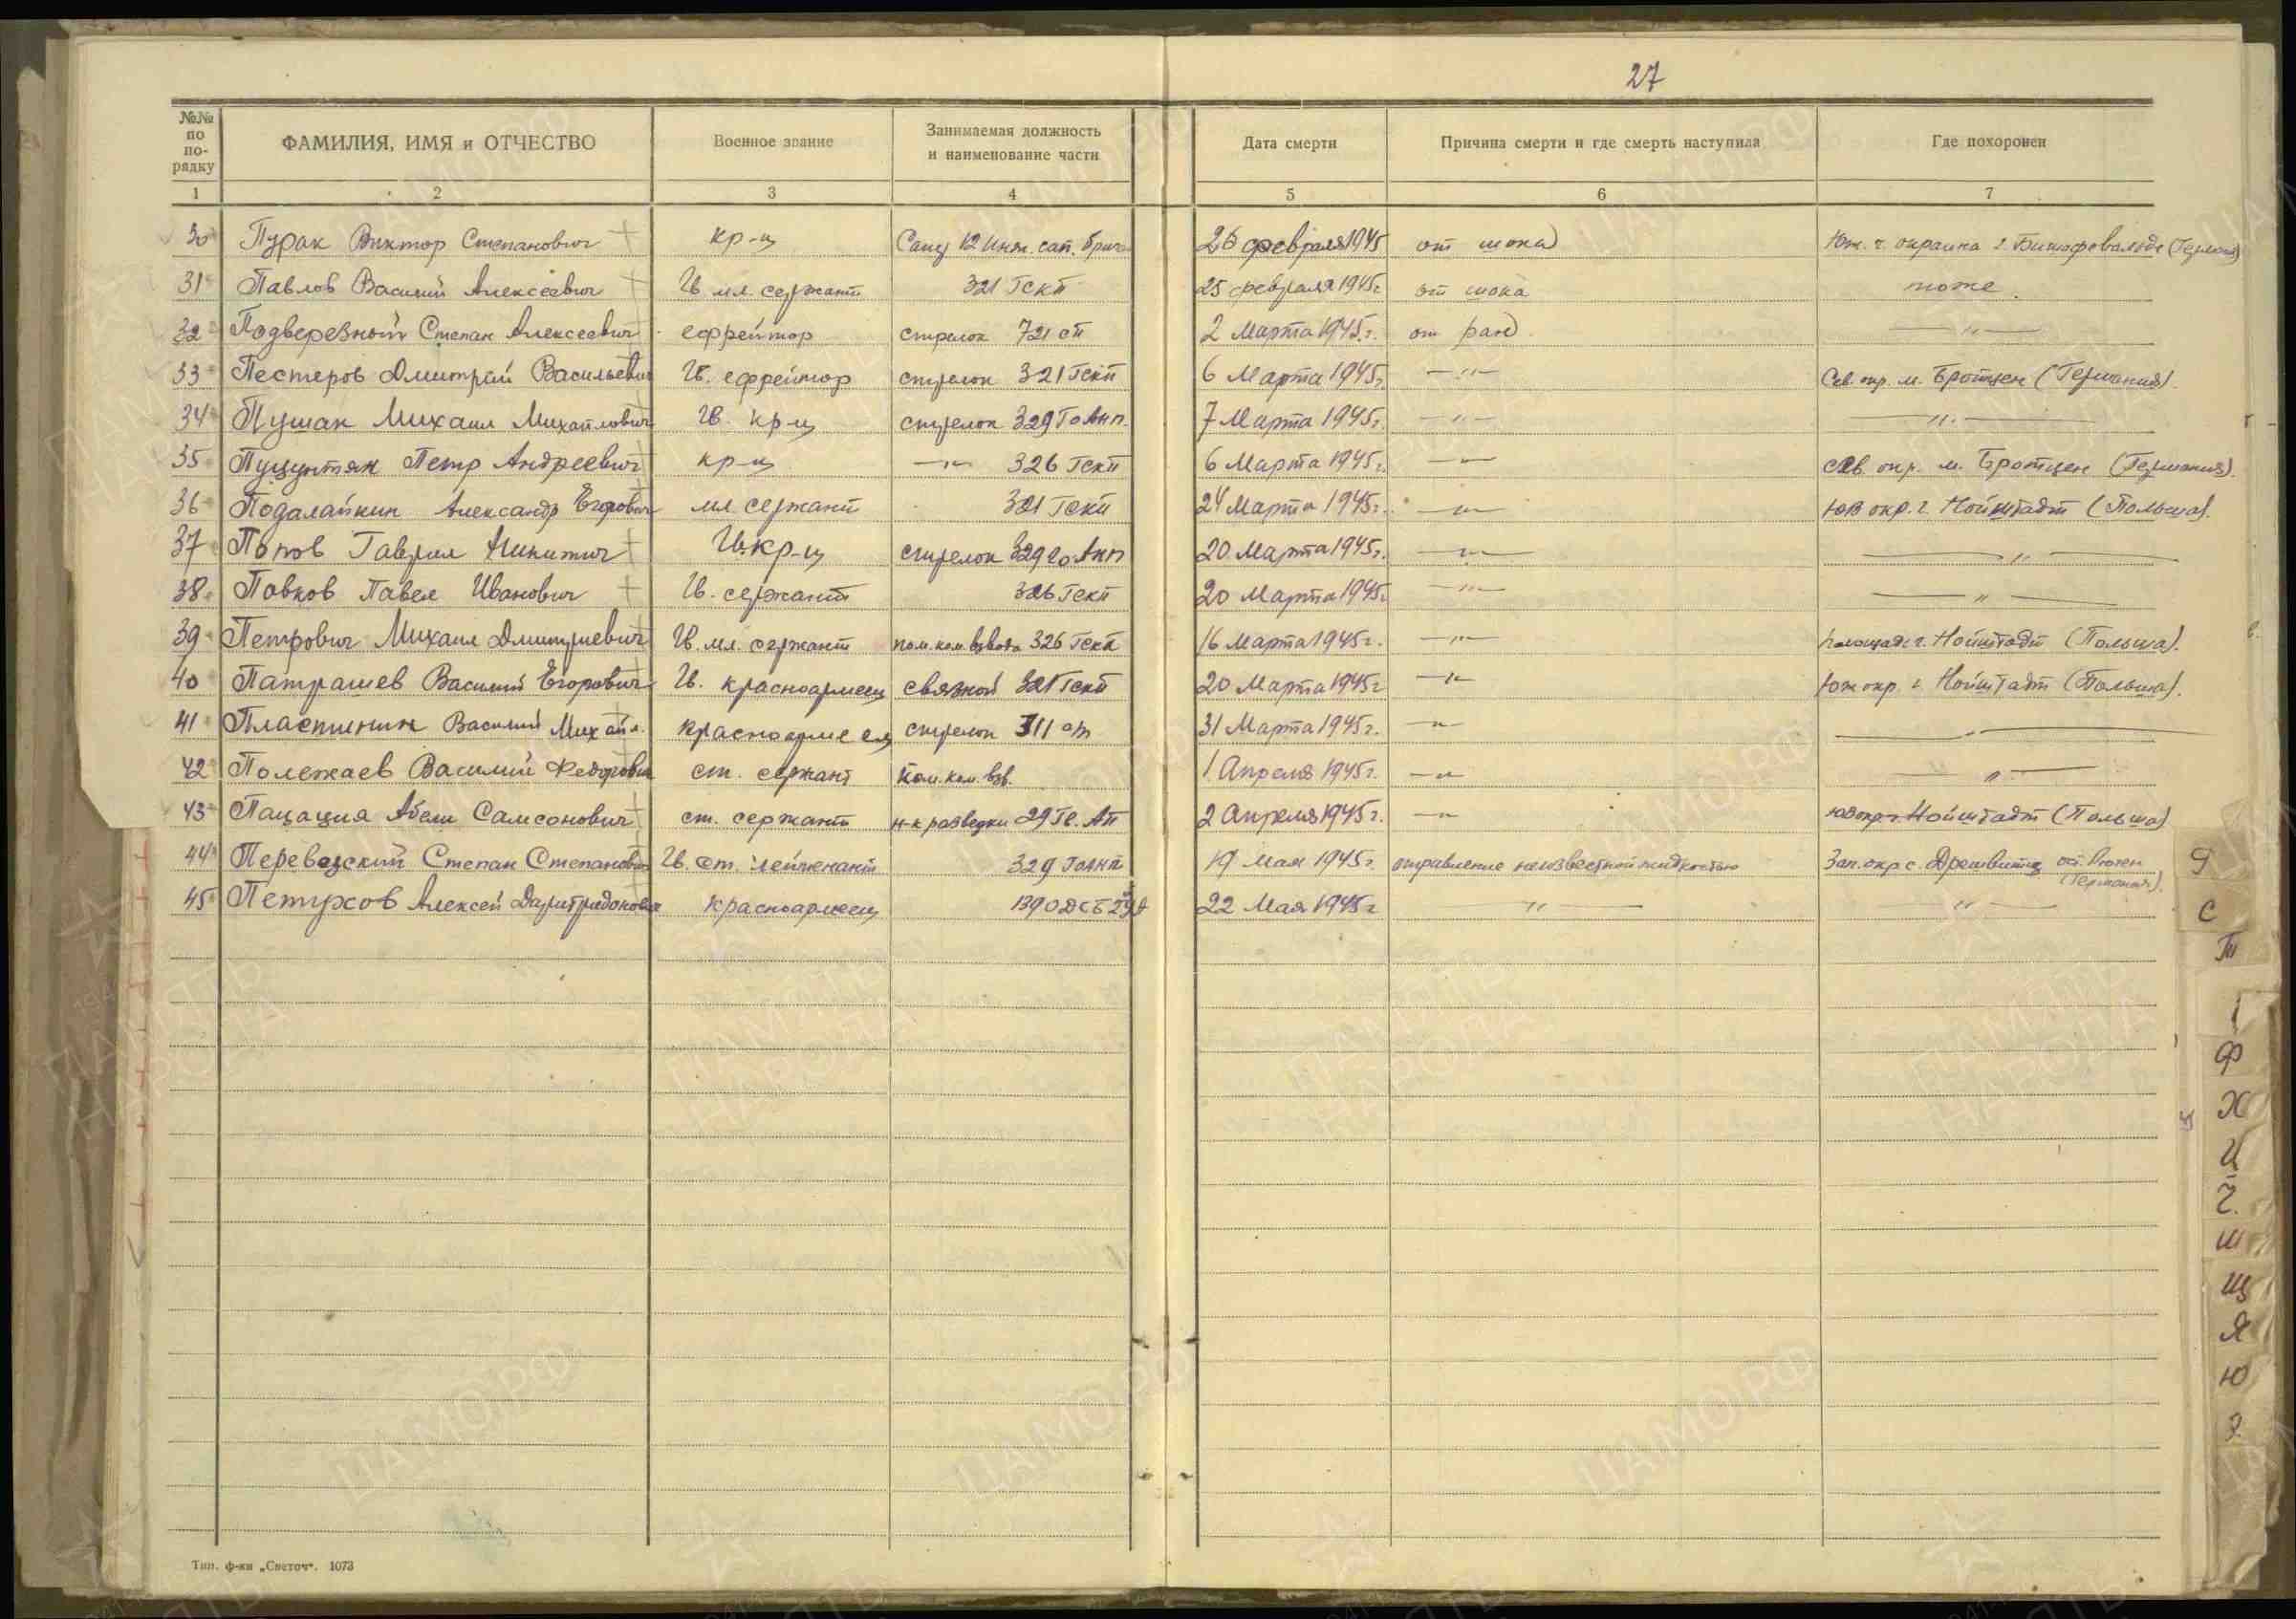 27
№№ по по-рядку | ФАМИЛИЯ, ИМЯ и ОТЧЕСТВО | Военное звание | Занимаемая должность и наименование части | Дата смерти | Причина смерти и где смерть наступила | Где похоронен
1 | 2 | 3 | 4 | 5 | 6 | 7
30 Пурак Виктор Степанович кр-ц Сапер 12 Инж. сап. бриг. 26 февраля 1945 от шока Юж. ч. окраина г. Бишофсвальде (Германия)
31 Павлов Василий Алексеевич Гв. мл. сержант 321 Гскп 25 февраля 1945г. от шока тоже.
32 Подверезный Степан Алексеевич ефрейтор стрелок 721 сп 2 Марта 1945г. от ран. —"—
33 Пестеров Дмитрий Васильевич Гв. ефрейтор стрелок 321 Гскп 6 Марта 1945г. —"— Сев. окр. м. Бротцен (Германия).
34 Пушак Михаил Михайлович Гв. кр-ц стрелок 329 Го 7 Марта 1945г. —"— —"—
35 Пуцунтян Петр Андреевич кр-ц —"— 326 Гскп 6 Марта 1945г. —"— сев. окр. м. Бротцен (Германия).
36 Подалайкин Александр Егорович мл сержант 321 Гскп 24 Марта 1945г. —"— ЮВ окр. г. Нойштадт (Польша).
37 Попов Гаврил Никитич Гв. кр-ц стрелок 329 20 Марта 1945г. —"— —"—
38 Повков Павел Иванович Гв. сержант 326 Гскп 20 Марта 1945г. —"— —"—
39 Петрович Михаил Дмитриевич Гв. мл. сержант пом. ком. взвода 326 Гскп 16 Марта 1945г. —"— площадь г. Нойштадт (Польша).
40 Патрашев Василий Егорович Гв. красноармеец связной 321 Гскп 20 Марта 1945г —"— Юж окр. г Нойштадт (Польша).
41 Пластинин Василий Михайл. красноармеец стрелок 311 сп 31 Марта 1945г. —"— —"—
42 Полежаев Василий Федорович ст. сержант пом. ком. взв. 1 Апреля 1945г. —"— —"—
43 Пацация Абели Самсонович ст. сержант н-к разведки 29 Гв. Ап 2 Апреля 1945г. —"— Нойштадт (Польша)
44 Перевозский Степан Степанович Гв. ст. лейтенант 329 19 мая 1945г. отравление неизвестной жидкостью Зап. окр с. Дрешвитц ост. Рюген (Германия).
45 Петухов Алексей красноармеец 22 Мая 1945г —"— —"—
С
Т
Ф
Х
Ц
Ч.
Ш
Щ
Я
Ю
Э.
Тип. ф-ки „Светоч“. 1073
ЦАМО.РФ
ПАМЯТЬ НАРОДА